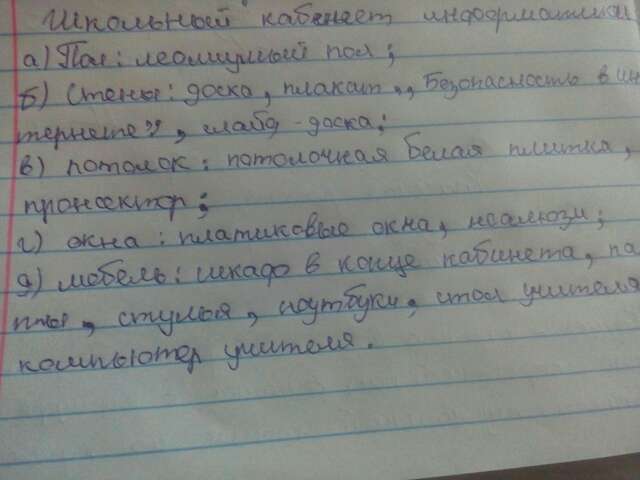 Школьный кабинеет информатики
а) Пол: леолиумный пол;
б) Стены: доска, плакат ,,Безопасность в ин
тернете”, слайд-доска;
в) потолок: потолочная белая плитка,
проноектор;
г) окна: платиковые окна, жоалюзи;
д) мебель: шкаф в конце кабинета, па
рты, стулья, ноутбуки, стол учителя
компьютер учителя.